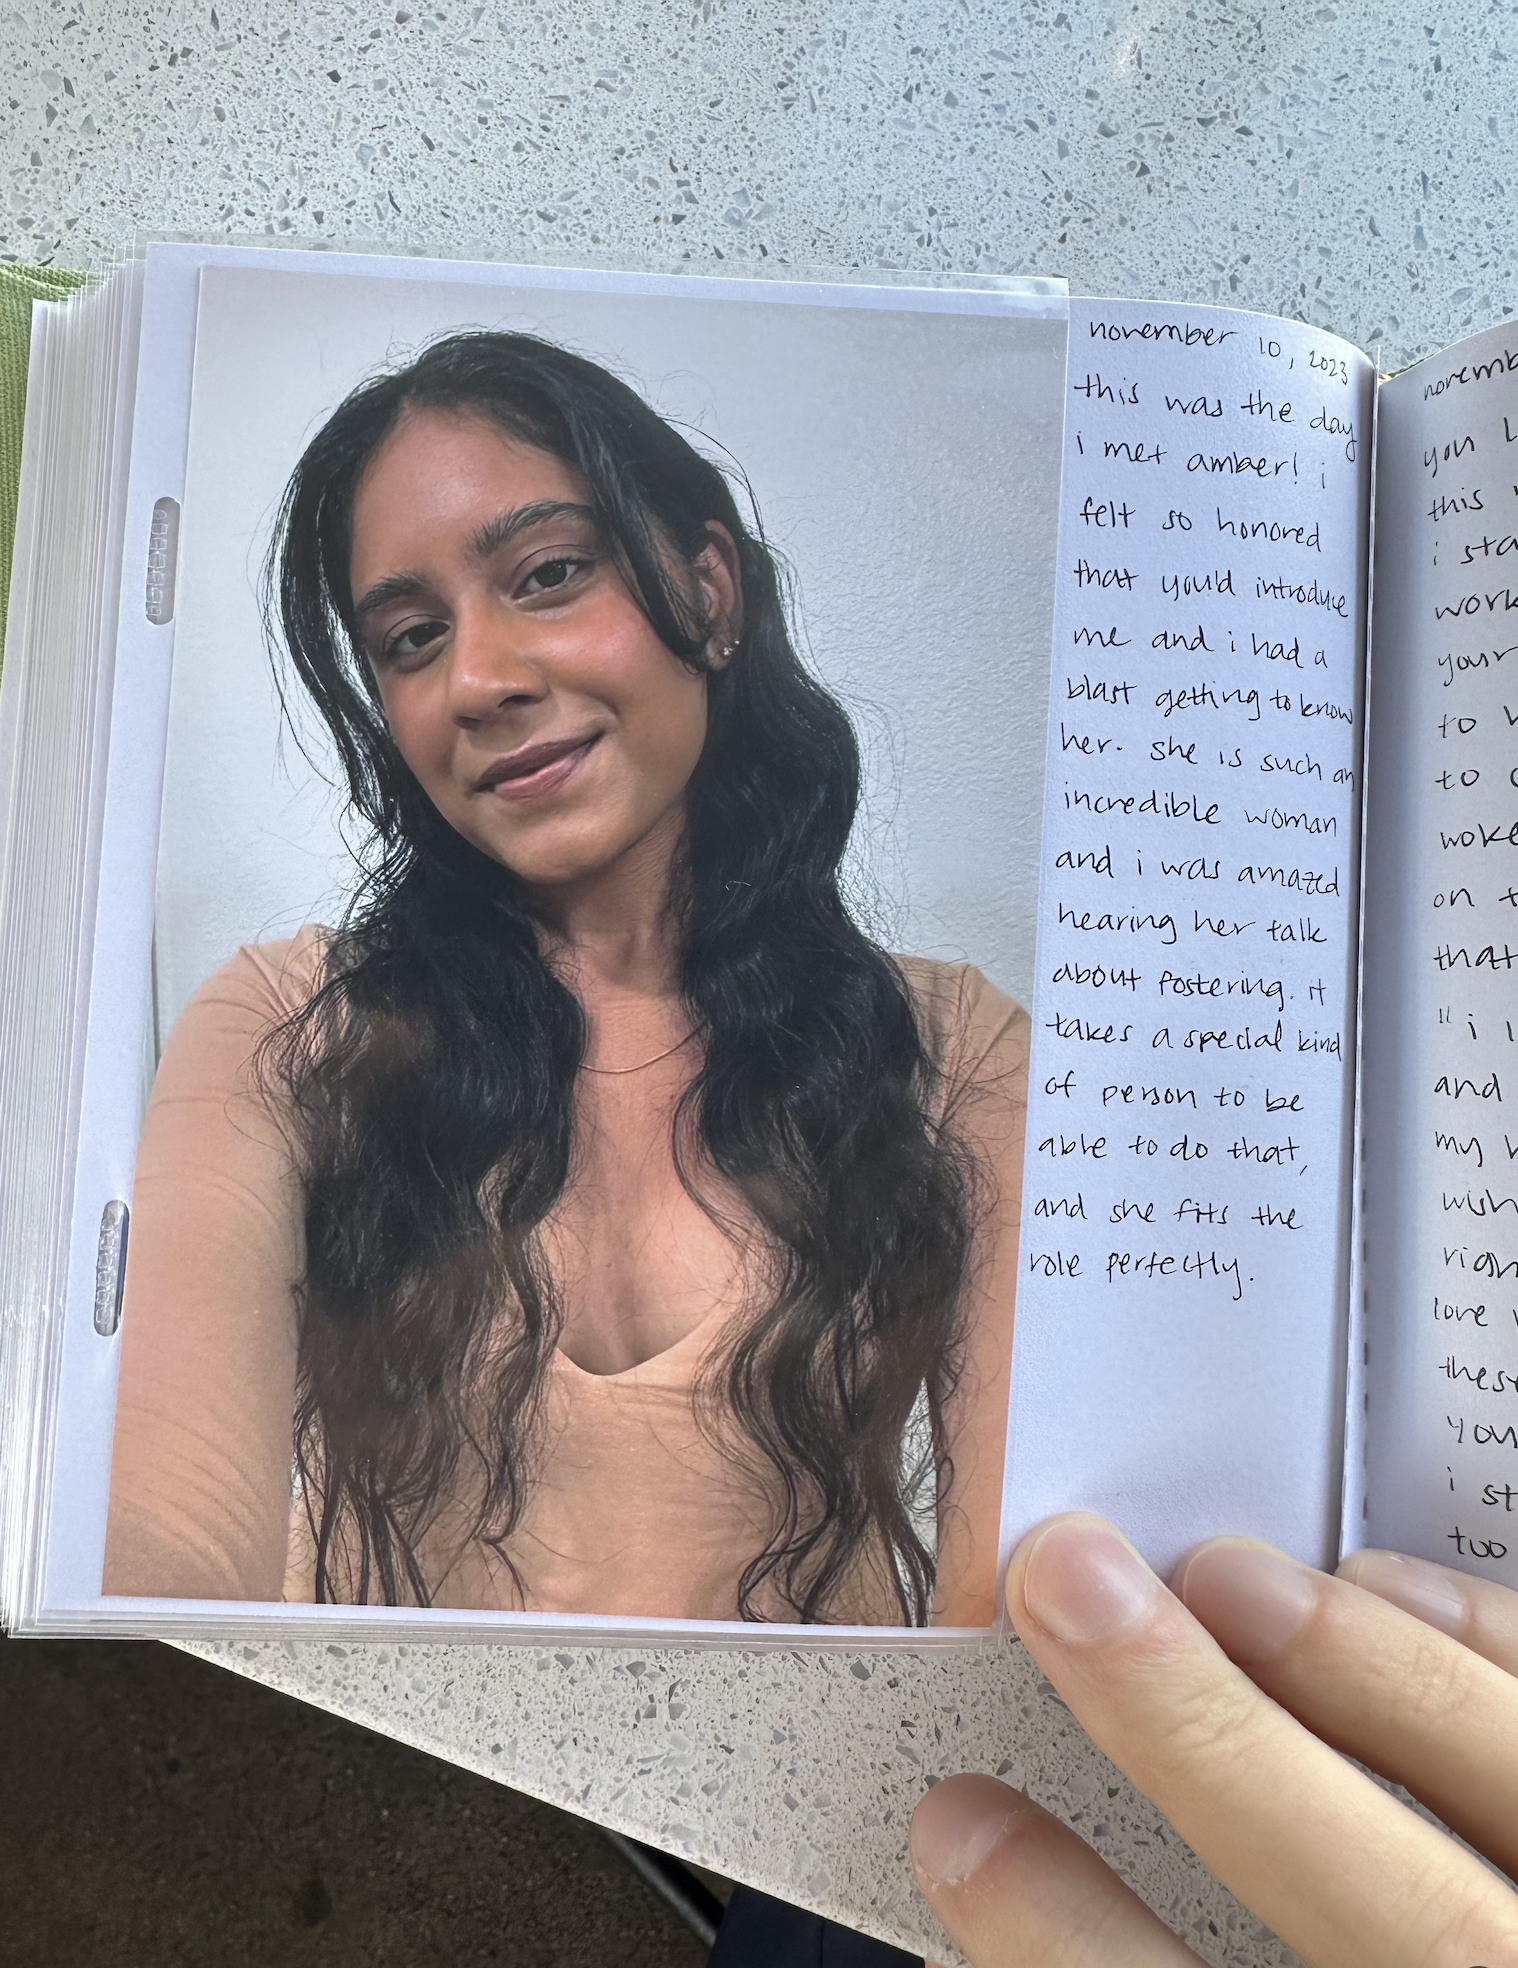 november 10, 2023
this was the day
i met amber! i
felt so honored
that you'd introduce
me and i had a
blast getting to know
her. she is such an
incredible woman
and i was amazed
hearing her talk
about fostering. it
takes a special kind
of person to be
able to do that,
and she fits the
role perfectly.
you
this
i
work
your
to
to
woke
on
that
"i
and
my
wish
love
i
too